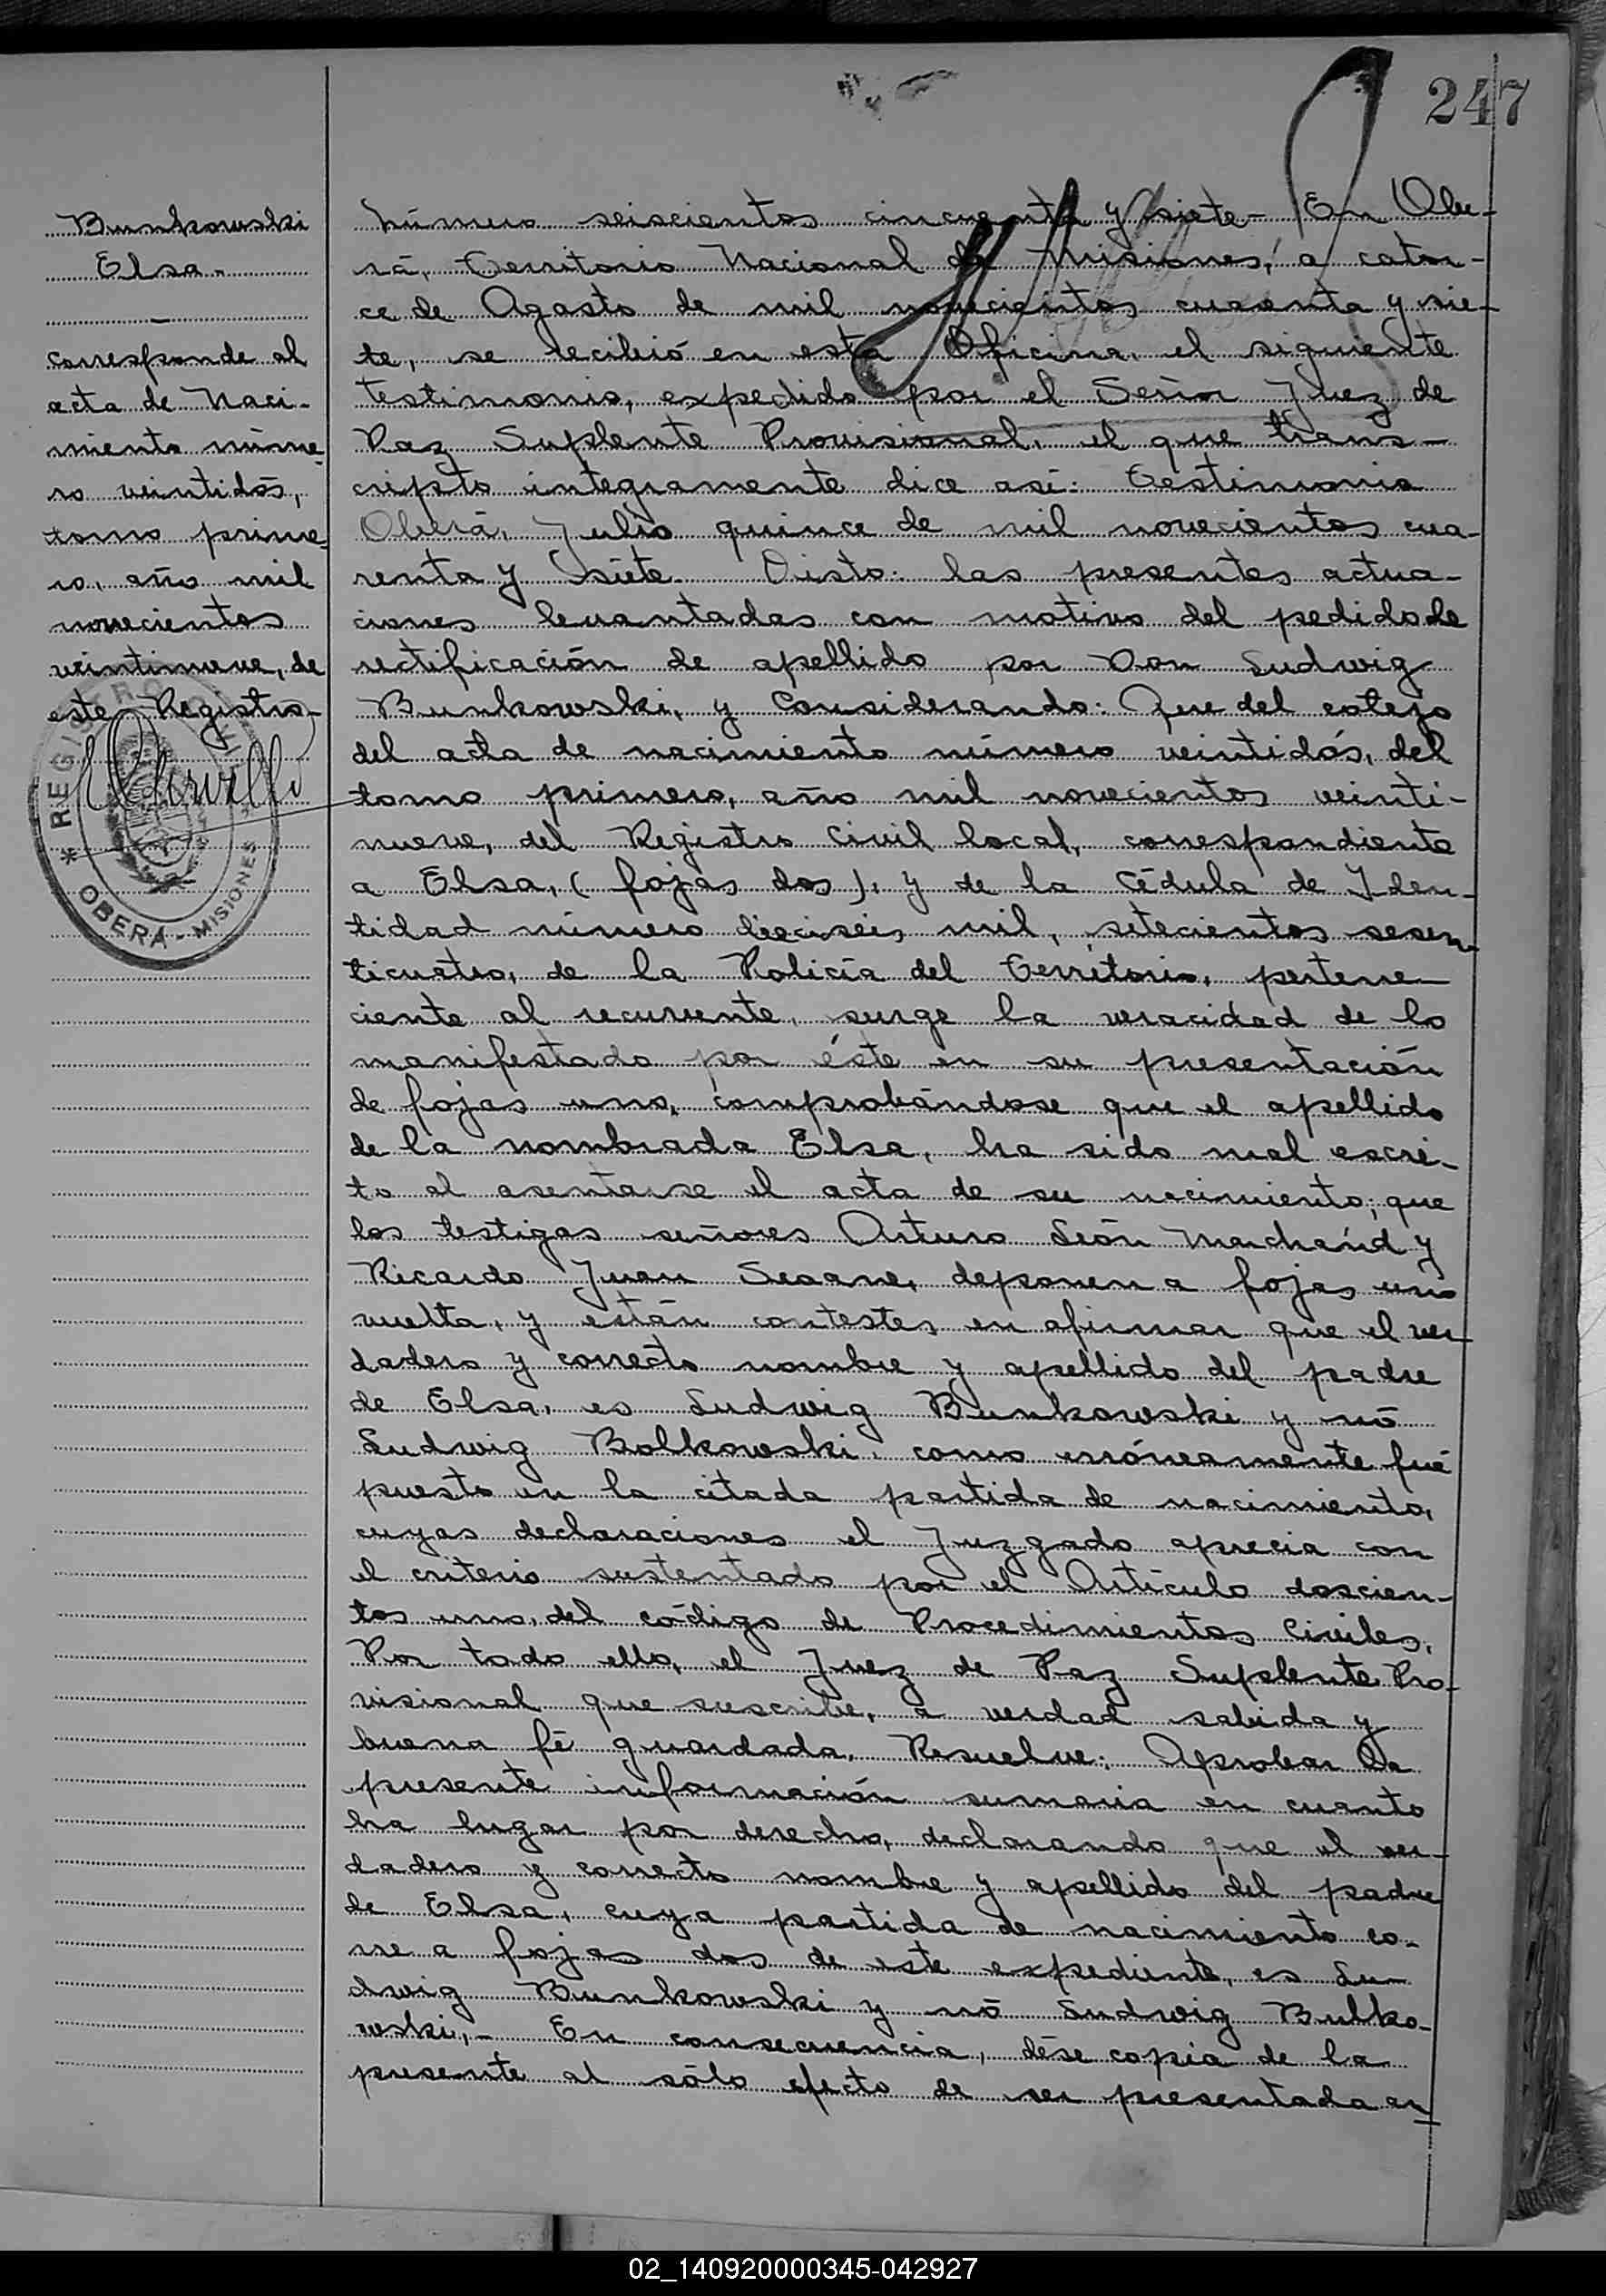 247
Bunkowski
Elsa.
corresponde al
acta de Naci-
miento núme-
ro veintidós,
tomo prime-
ro, año mil
novecientos
veintinueve, de
este Registro.
REGISTRO CIVIL
* OBERÁ - MISIONES *
Número seiscientos cincuenta y siete - En Obe-
rá, Territorio Nacional de Misiones, a cator-
ce de Agosto de mil novecientos cuarenta y sie-
te, se recibió en esta Oficina, el siguiente
testimonio, expedido por el Señor Juez de
Paz Suplente Provisional, el que trans-
cripto integramente dice así: Testimonio
Oberá, Julio quince de mil novecientos cua-
renta y siete. Visto: las presentes actua-
ciones levantadas con motivo del pedido de
rectificación de apellido por Don Ludwig
Bunkowski, y Considerando: Que del cotejo
del acta de nacimiento número veintidós, del
tomo primero, año mil novecientos veinti-
nueve, del Registro Civil local, correspondiente
a Elsa, (fojas dos), y de la Cédula de Iden-
tidad número dieciseis mil, setecientos sesen-
ticuatro, de la Policía del Territorio, pertene-
ciente al recurrente, surge la veracidad de lo
manifestado por éste en su presentación
de fojas uno, comprobándose que el apellido
de la nombrada Elsa, ha sido mal escri-
to al asentarse el acta de su nacimiento; que
los testigos señores Arturo León Marchand y
Ricardo Juan Seoane, deponen a fojas uno
vuelta, y están contestes en afirmar que el ver-
dadero y correcto nombre y apellido del padre
de Elsa, es Ludwig Bunkowski y nó
Ludwig Bolkowski, como erróneamente fué
puesto en la citada partida de nacimiento,
cuyas declaraciones el Juzgado aprecia con
el criterio sustentado por el Artículo doscien-
tos uno, del código de Procedimientos Civiles.
Por todo ello, el Juez de Paz Suplente Pro-
visional que suscribe, a verdad sabida y
buena fé guardada, Resuelve: Aprobar la
presente información sumaria en cuanto
ha lugar por derecho, declarando que el ver-
dadero y correcto nombre y apellido del padre
de Elsa, cuya partida de nacimiento co-
rre a fojas dos de este expediente, es Lu-
dwig Bunkowski y nó Ludwig Bulko-
wski,- En consecuencia, dése copia de la
presente al sólo efecto de ser presentada en
02_140920000345-042927